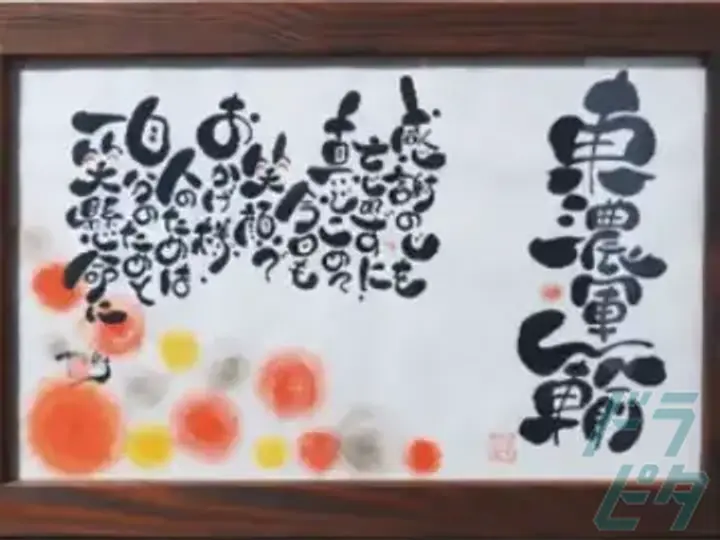 東濃運輸
感謝の心を
忘れずに
真心こめて
今日も
笑顔で
おかげ様
人のためは
自分のためと
一笑懸命に
ドラ
ピタ